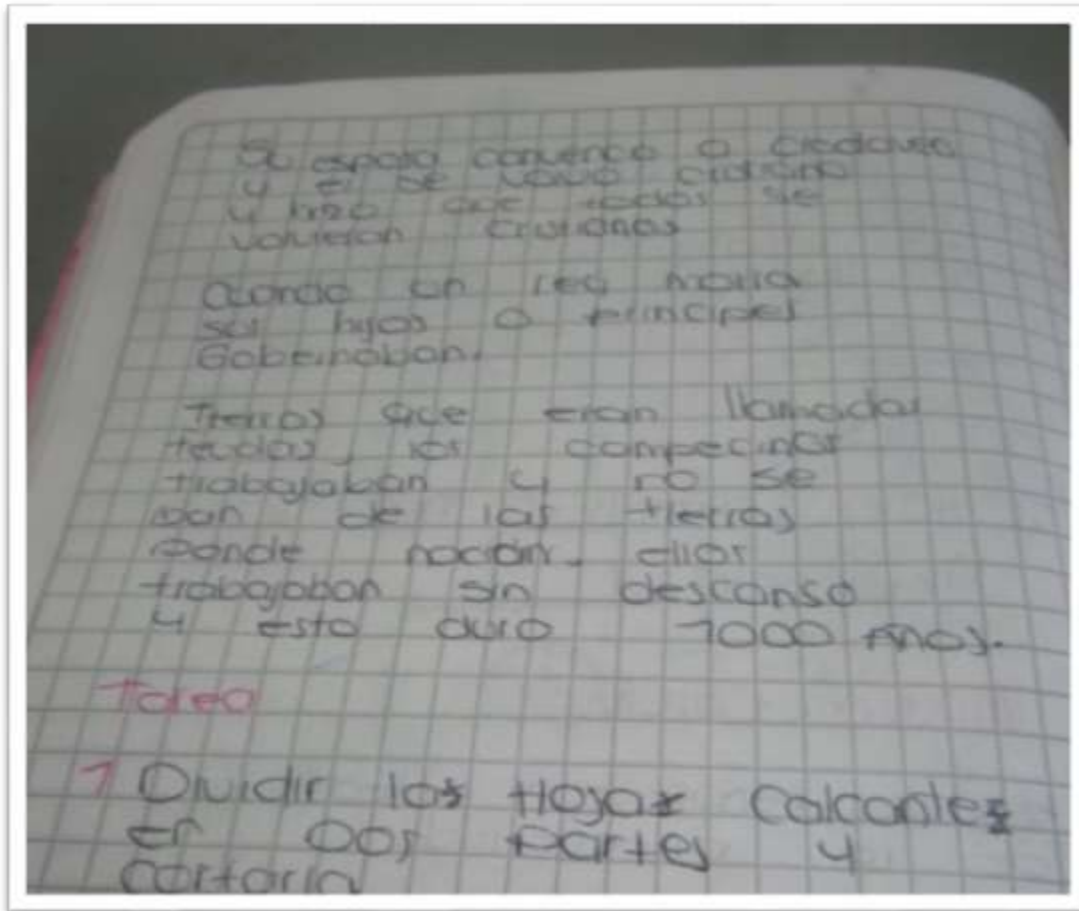 Su esposa convenció a clodoveo
y el se volvió cristiano
y hizo que todos se
volvieran cristianos
Cuando un rey moria
sus hijos o principes
Gobernaban.
Tierras que eran llamadas
feudos, los campecinos
trabajaban y no se
de las tierras
Donde nacian. ellos
trabajaban sin descanso
y esto duro 1000 Años.
Tarea
1 Dividir las Hojas Calcantes
en Dos Partes y